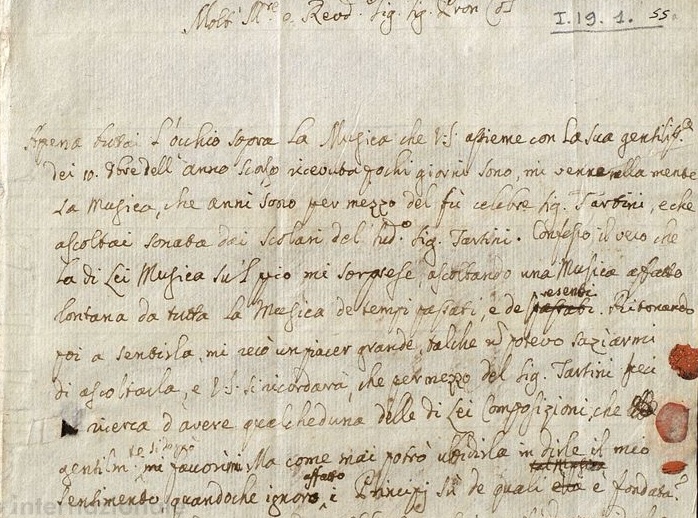 Molt. Mre. e Revd. Sig. Sig. Pron Col
I.19.1. 55.
Appena buttai l'occhio sopra la Musica che V:S: assieme con la sua gentiliss.
dei 10. 9bre dell'anno scorso ricevuta pochi giorni sono, mi venne nella mente
la Musica, che anni sono per mezzo del fù celebre Sig. Tartini, e che
ascoltai sonata dai Scolari del Sig. Tartini. Confesso il vero che
la di Lei Musica su'l p.co mi sorprese, ascoltando una Musica affatto
lontana da tutta la Musica de tempi passati, e de presenti. Ritornando
poi a sentirla, mi recò un piacer grande, talche n potevo saziarmi
di ascoltarla, e V:S: si ricordarà, che per mezzo del Sig. Tartini feci
ricerca d'avere qualcheduna delle di Lei Composizioni, che
gentilm.te mi favorì. Ma come mai potrò ubbidirla in dirle il mio
sentimento quandoche ignoro affatto i Principj su de quali è fondata?
internazionale